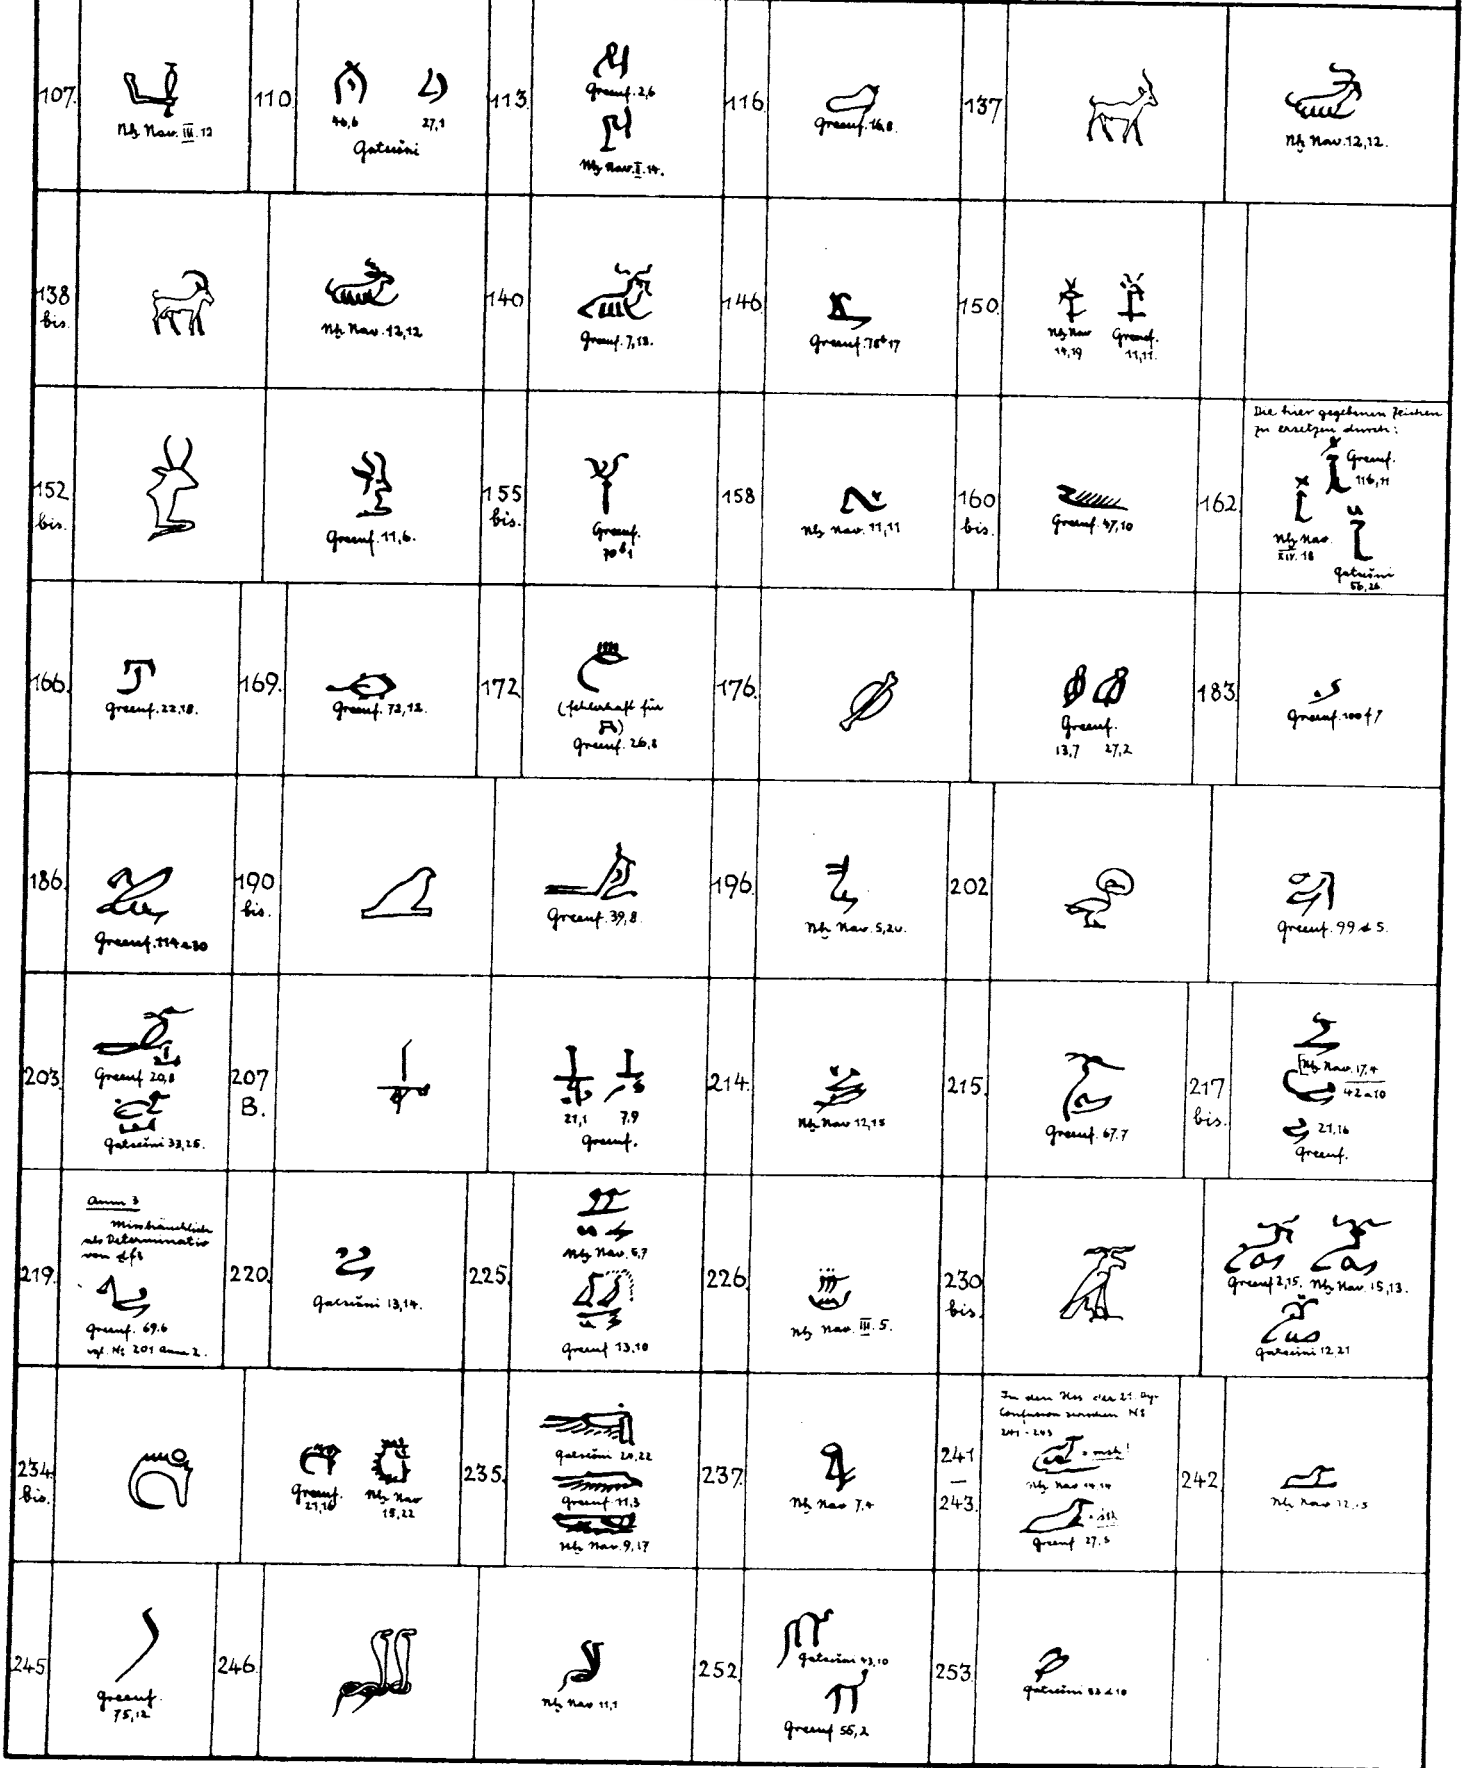 107.
Nḫ. Nav. III. 12
110
46,6
27,1
Gatsešni
113.
Greenf. 2,6
Nḫ Nav. II. 14.
116.
Greenf. 16,8.
137
Nḫ Nav. 12,12.
138
bis.
Nḫ. Nav. 12,12
140
Greenf. 7,12.
146
Greenf.
150.
Nḫ Nav
14,19
Greenf.
11,11.
152
bis.
Greenf. 11,6.
155
bis.
Greenf.
158
Nḫ Nav. 11,11
160
bis.
Greenf. 47,10
162
Die hier gegebenen Zeichen
zu ersetzen durch:
Greenf.
116,11
Nḫ Nav.
XIV. 18
Gatsešni
56,26
166.
Greenf. 22,18.
169.
Greenf. 72,12.
172
(fehlerhaft für
)
Greenf. 26,8
176.
Greenf.
13,7 27,2
183.
Greenf.
186.
Greenf.
190
bis.
Greenf. 39,8.
196.
Nḫ Nav.
202
Greenf. 99 d 5.
203.
Greenf 20,8
Gatsešni 33,25.
207
B.
21,1 7,9
Greenf.
214.
Nḫ Nav 12,15
215.
Greenf. 67.7
217
bis.
Nḫ Nav. 17,4
42 a 10
21,16
Greenf.
219.
Anm 3
Missbräuchlich
als Determinativ
von
Greenf. 69.6
vgl. No 201 Anm 2.
220.
Gatsešni 13,14.
225.
Nḫ Nav. 5,7
Greenf 13,10
226.
Nḫ Nav. III. 5.
230
bis.
Greenf 2,15. Nḫ Nav. 15,13.
Gatsešni 12.21
234
bis.
Greenf.
21,16
Nḫ Nav
15,22
235.
Gatsešni 20,22
Greenf 11,3
Nḫ Nav. 9,17
237.
Nḫ Nav 7,4
241
—
243.
In den Hss der 21. Dy.
Confusion zwischen No
241-243
Nḫ Nav 14.14
Greenf 27,5
242.
Nḫ Nav
245
Greenf.
75,12
246.
Nḫ Nav 11,1
252
Gatsešni 43,10
Greenf 55,2
253.
Gatsešni